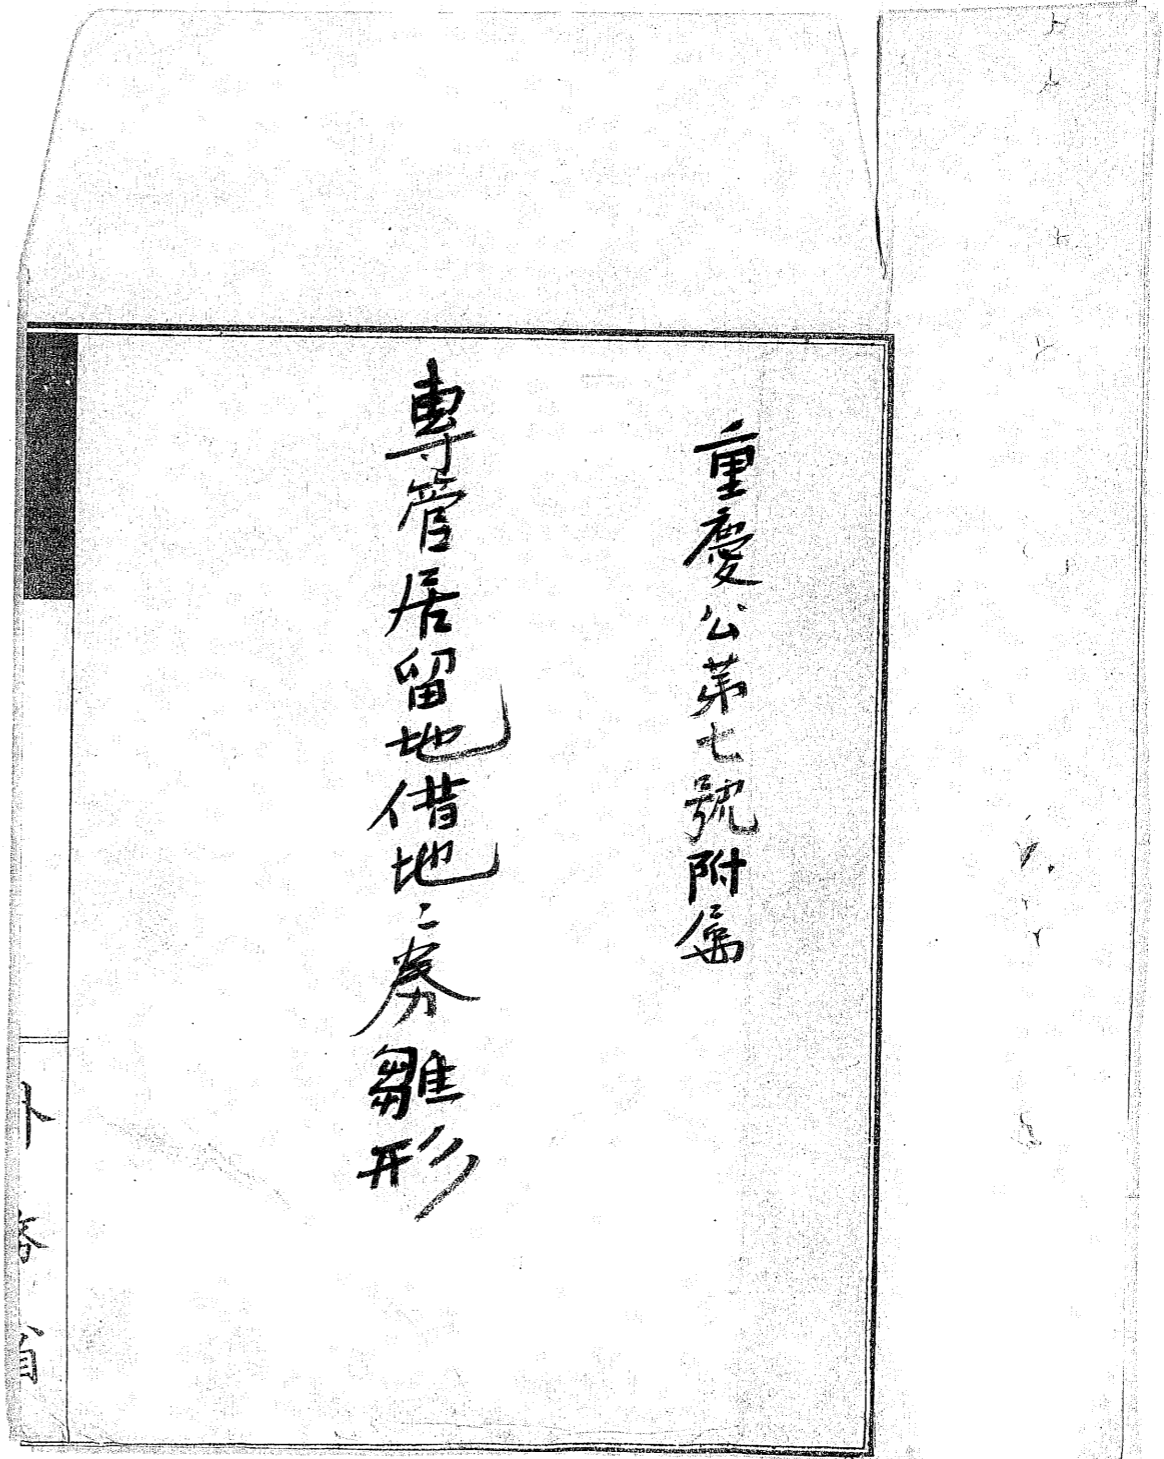 重慶公第七號附屬
專管居留地借地ニ券雛形
外務省